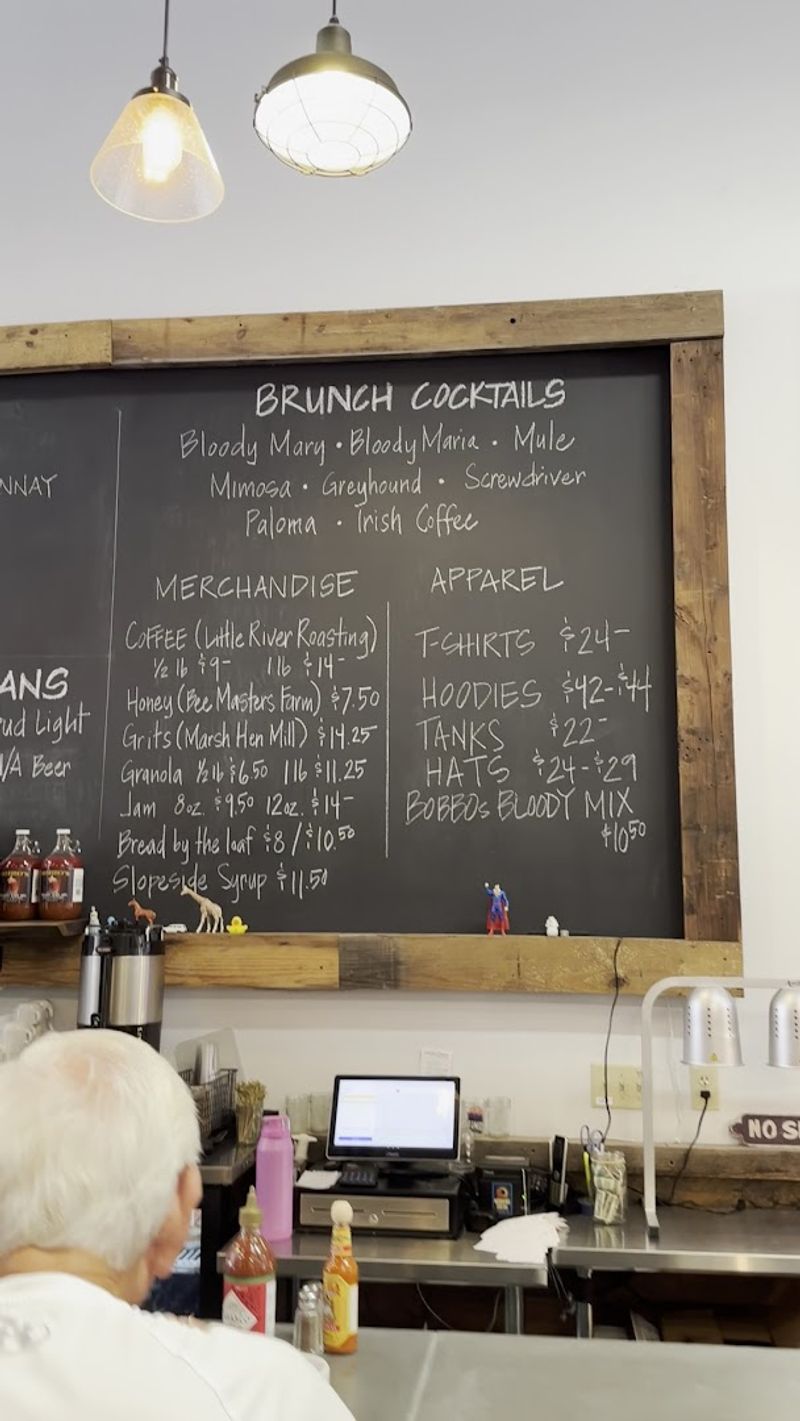 BRUNCH COCKTAILS
Bloody Mary • Bloody Maria • Mule
Mimosa • Greyhound • Screwdriver
Paloma • Irish Coffee
NNAY
ANS
ud Light
/A Beer
MERCHANDISE
COFFEE (Little River Roasting)
½ lb $9- 1 lb $14-
Honey (Bee Masters Farm) $7.50
Grits (Marsh Hen Mill) $14.25
Granola ½ lb $6.50 1 lb $11.25
Jam 8oz. $9.50 12oz. $14-
Bread by the loaf $8 / $10.50
Slopeside Syrup $11.50
APPAREL
T-SHIRTS $24-
HOODIES $42-$44
TANKS $22-
HATS $24-$29
BOBBOs BLOODY MIX
$10.50
NO S